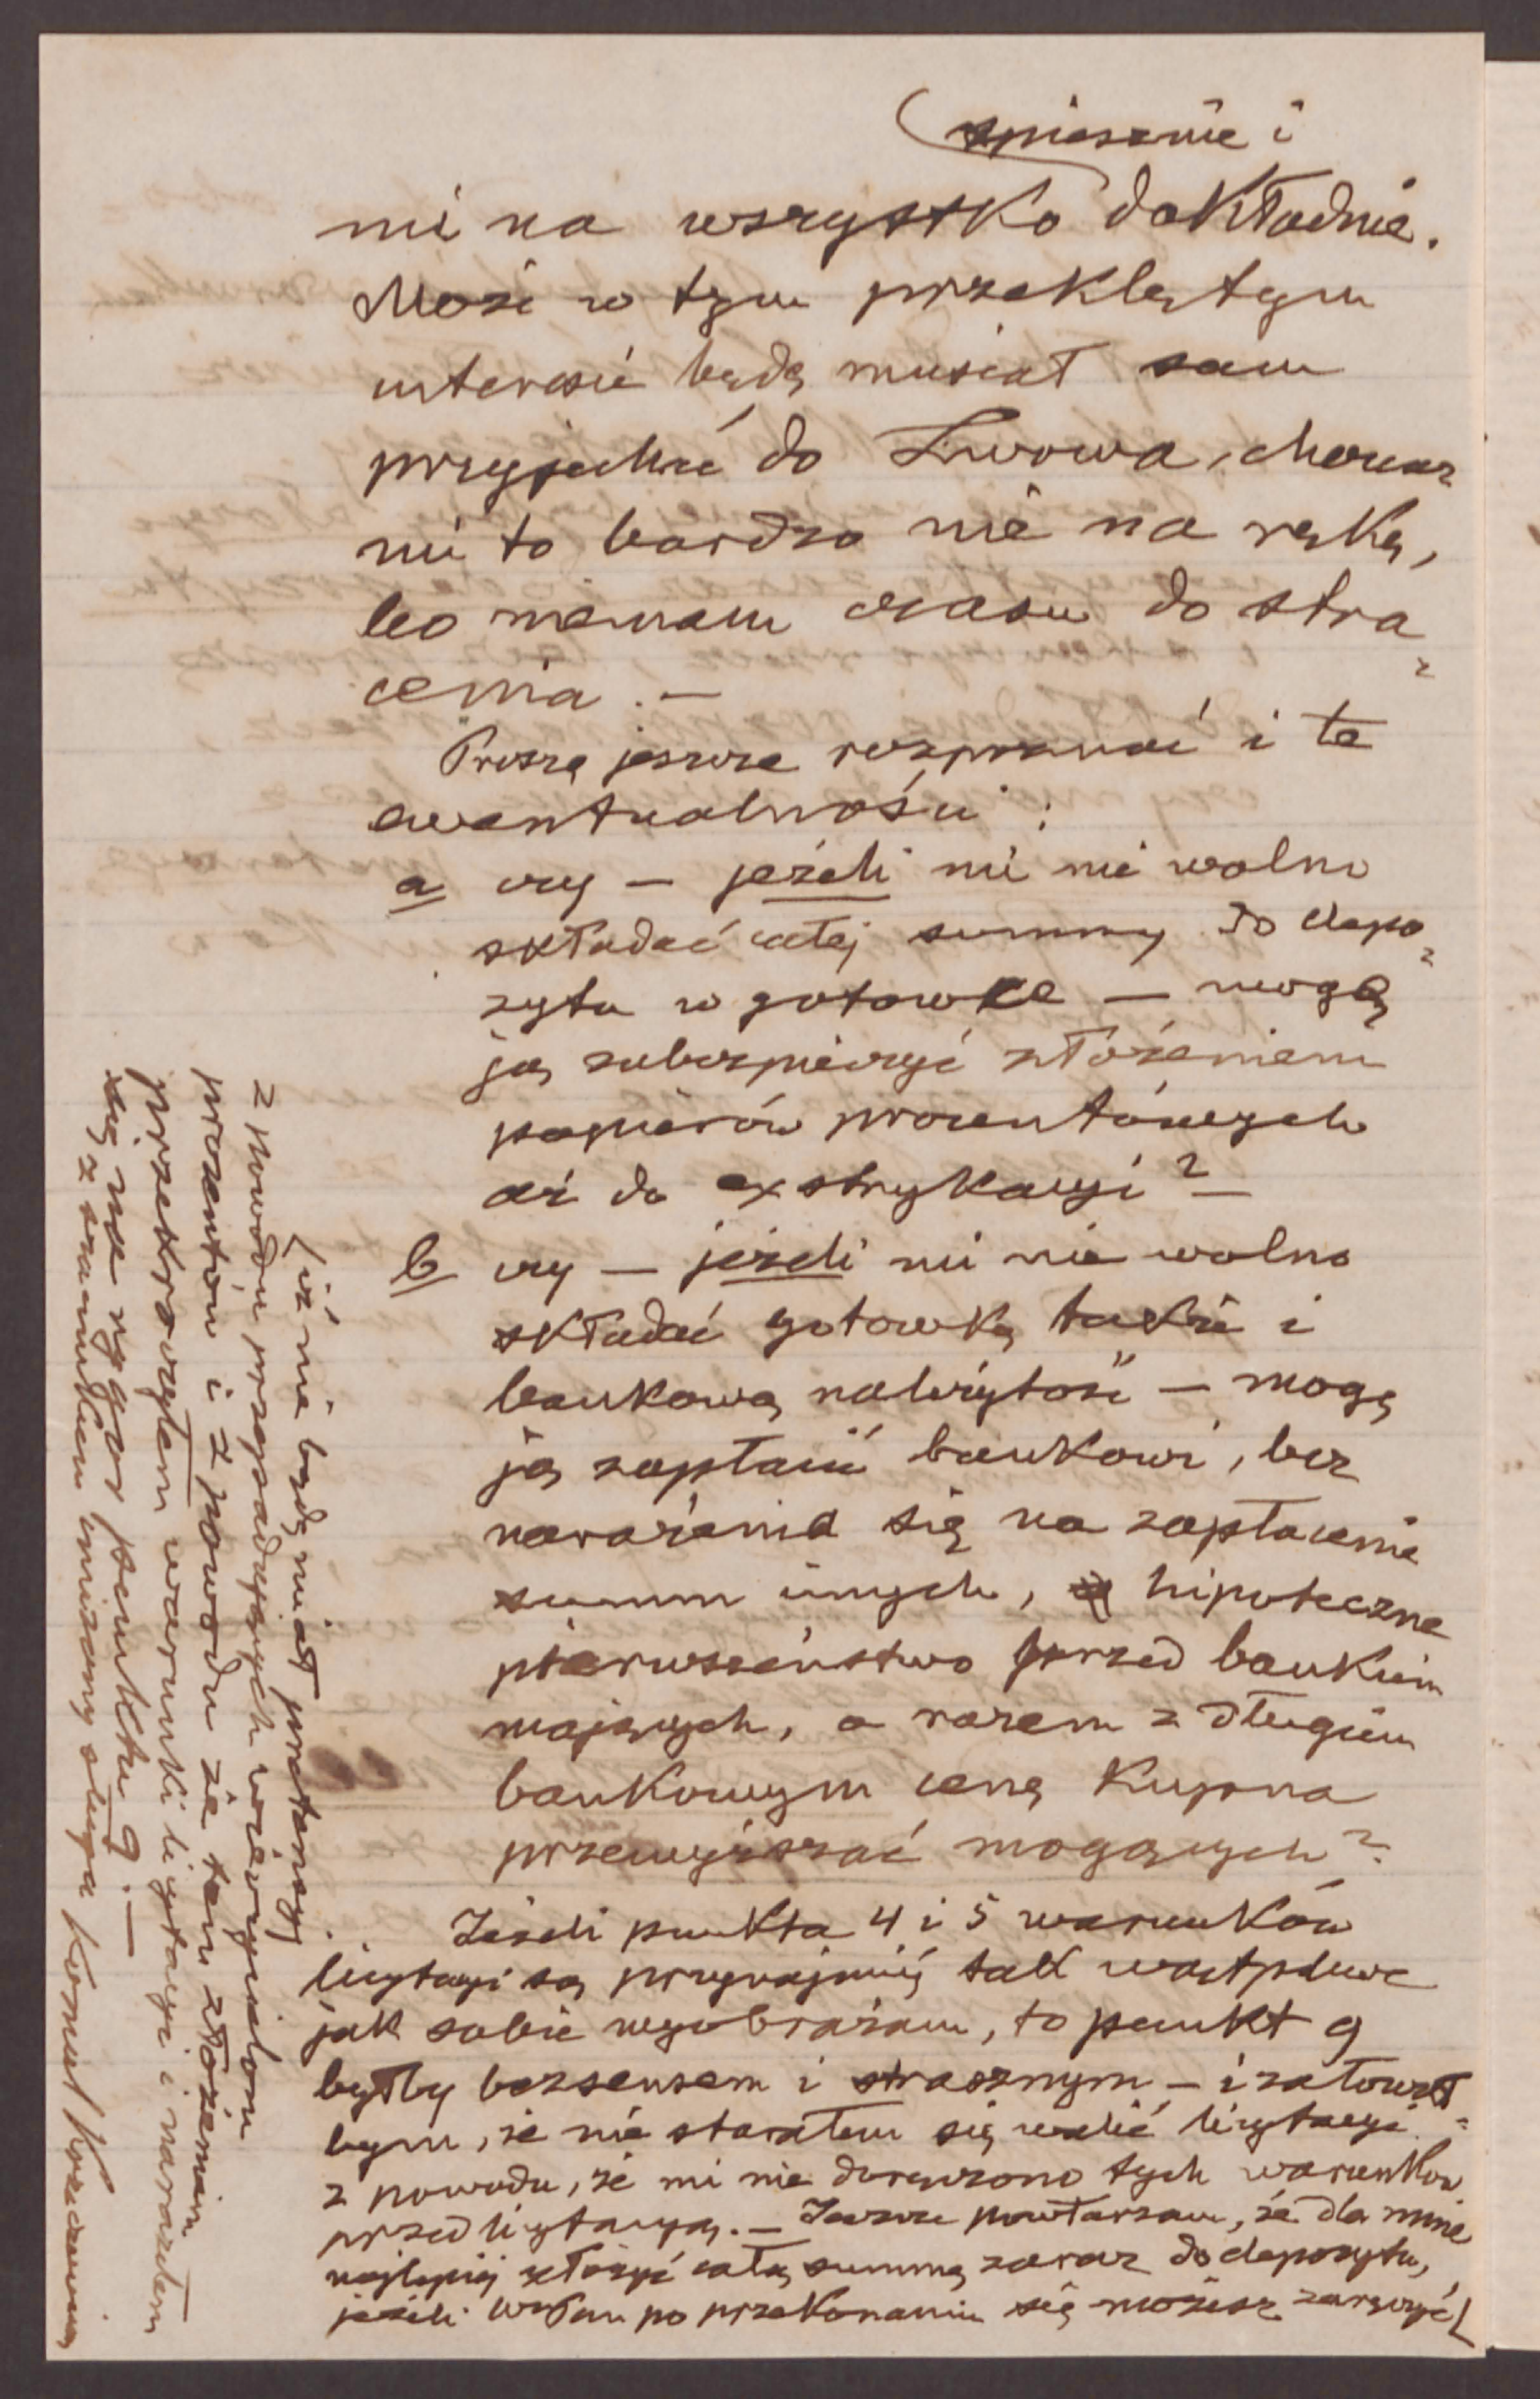 spiesznie i
mi na wszystko dokładnie.
Może w tym przeklętym
interesie będę musiał sam
przyjechać do Lwowa, chociaż
mi to bardzo nie na rękę,
bo niemam czasu do stra-
cenia. —
Proszę jeszcze rozpoznać i te
ewentualności:
a czy — jeżeli mi nie wolno
składać całej summy do depo-
zytu w gotowce — mogę
ją zabezpieczyć złożeniem
papierów procentówych
aż do exstrykacyi? —
b czy — jeżeli mi nie wolno
składać gotowką także i
bankową należytość — mogę
ją zapłacić bankowi, bez
narażenia się na zapłacenie
summ innych, hipoteczne
pierwszeństwo przed bankiem
mających, a razem z długiem
bankowym cenę kupna
przewyższać mogących?
Jeżeli punkta 4 i 5 warunków
licytacyi są przynajmniej tak wątpliwe
jak sobie wyobrażam, to punkt 9
byłby bezsensem i strasznym — i żałował-
bym, że nie starałem się licytacyi
z powodu, że mi nie doręczono tych warunków
przed licytacyą. — Jeszcze powtarzam, że dla mnie
najlepiej złożyć całą summę zaraz do depozytu,
jeżeli WPan po przekonaniu się możesz zaręczyć
iż nie będę miał pretensyj
z powodu przepadających wierzycielom
procentów i z powodu że tem złożeniem
przekroczyłem warunki licytacyi i naraziłem
się na rygor punktu 9. —
z szacunkiem uniżony sługa Kornel Krzeczunowicz